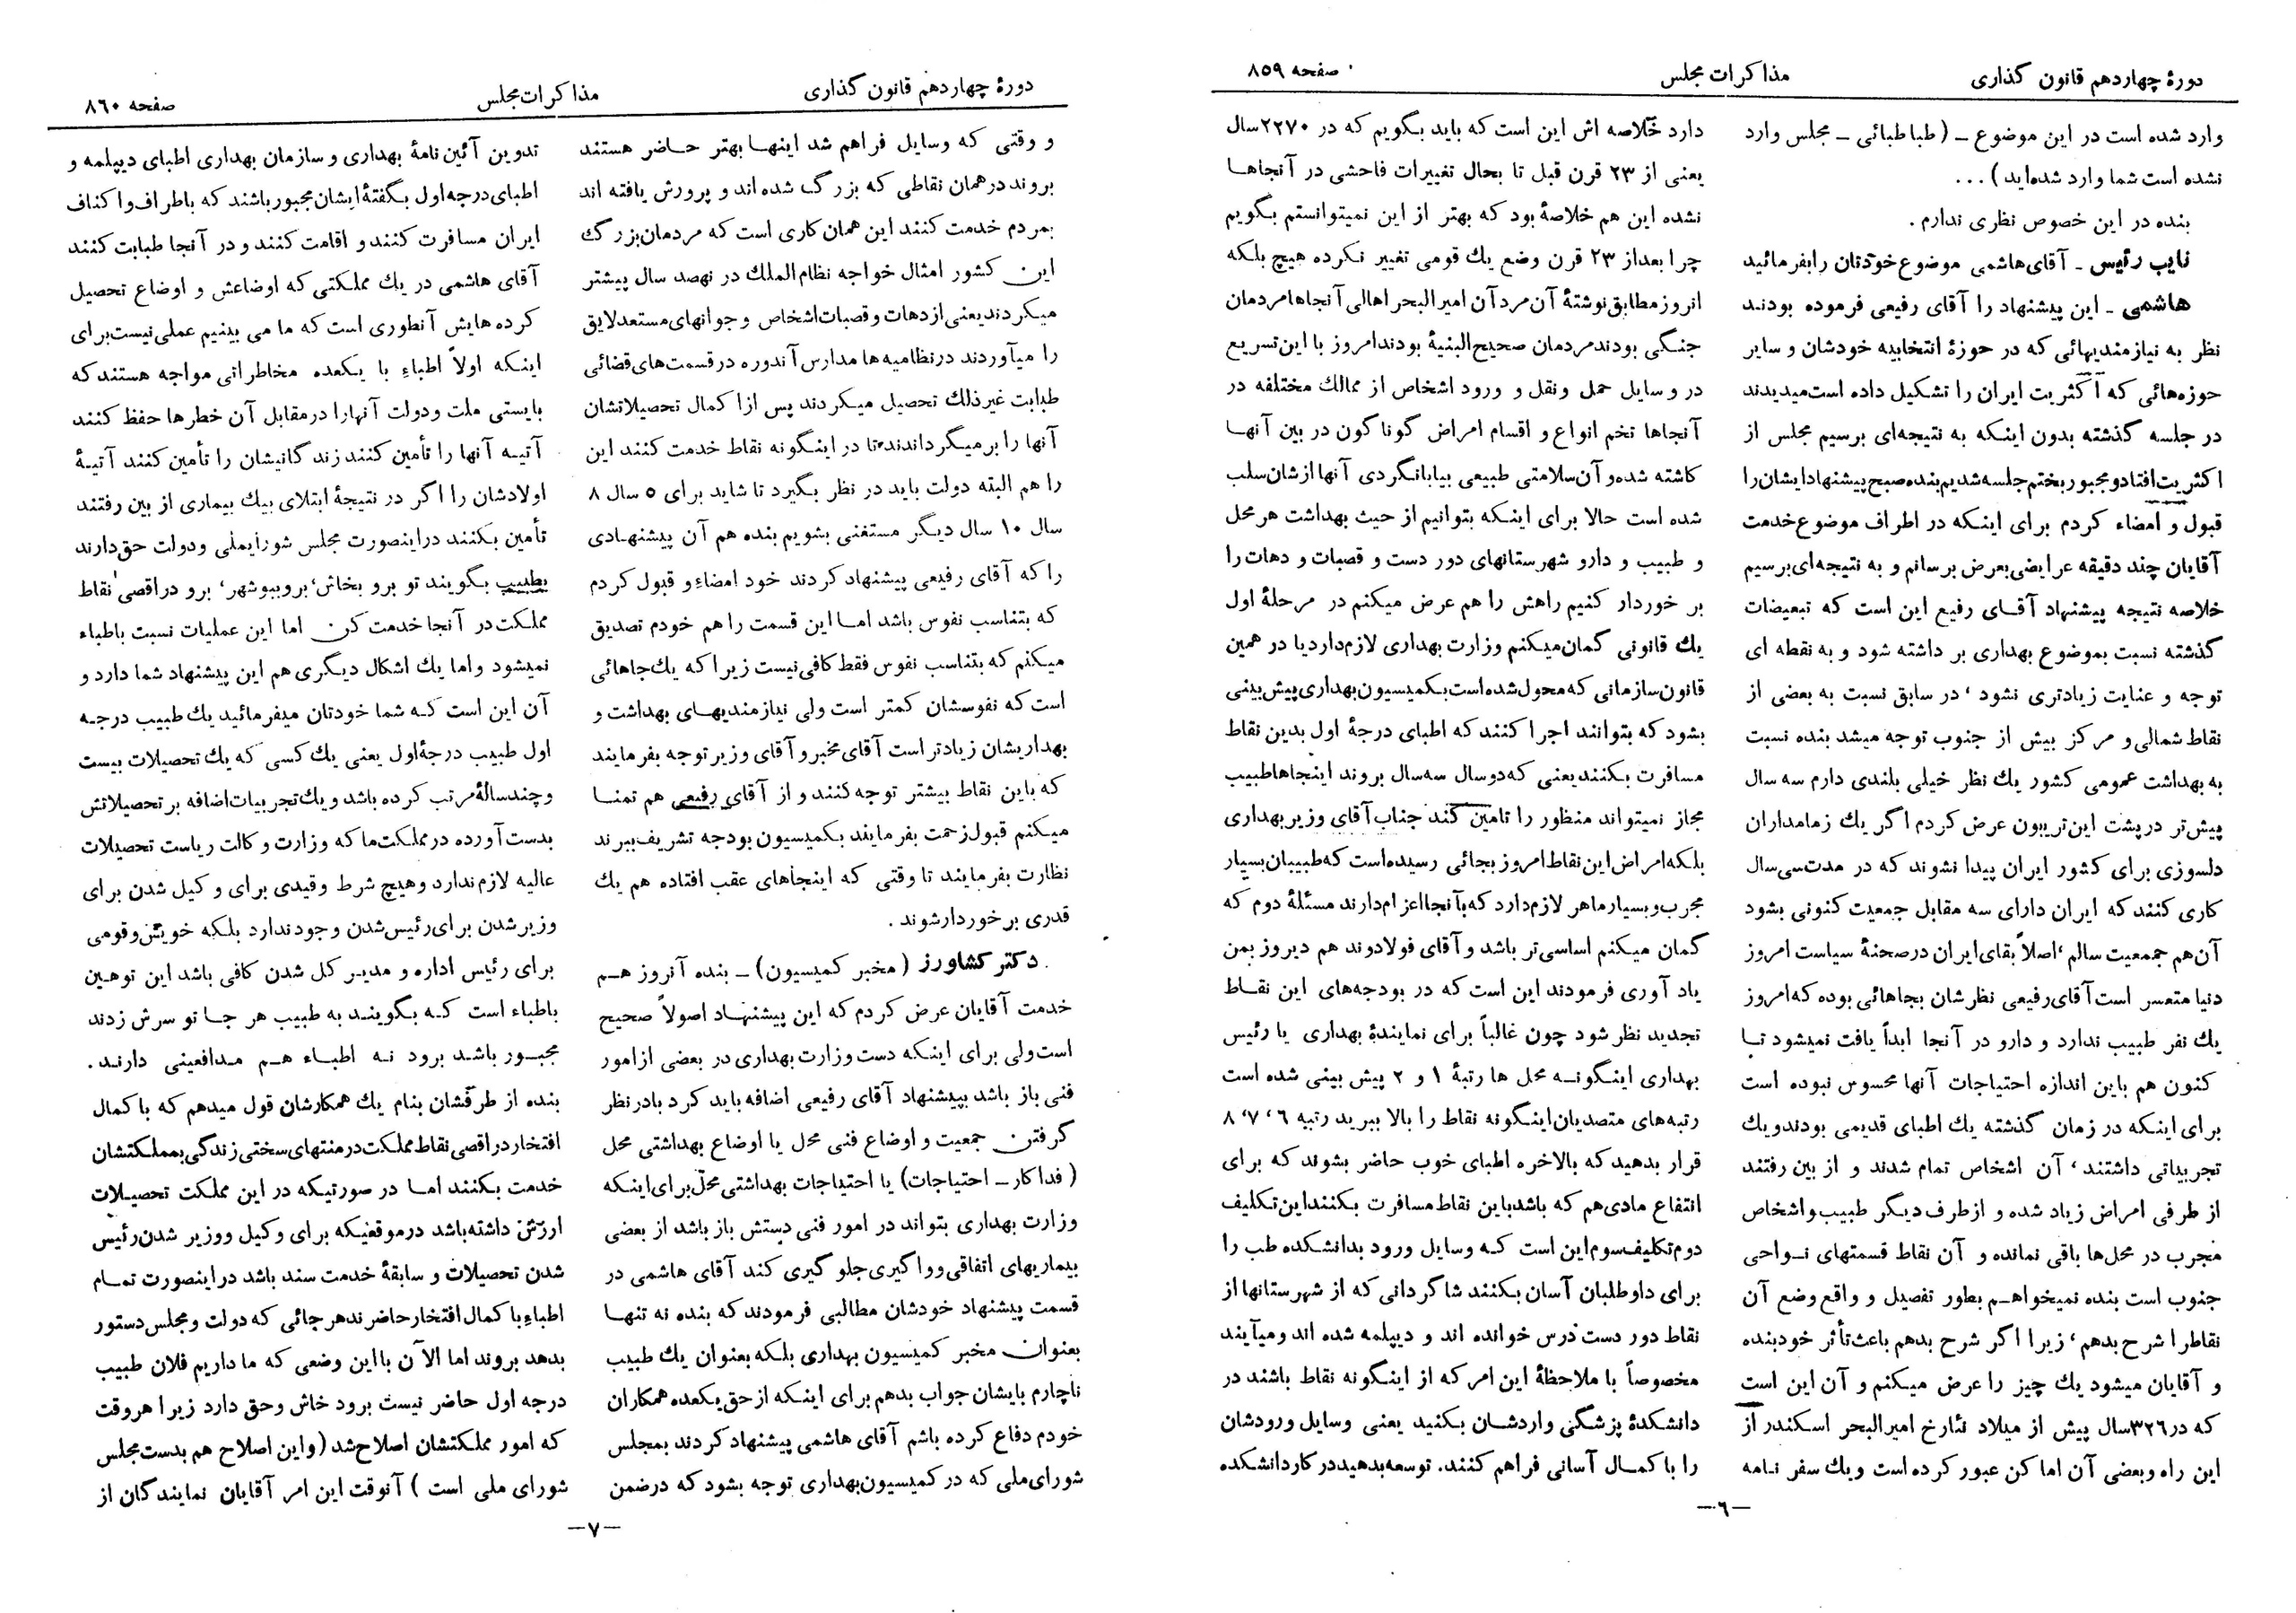 دورهٔ چهاردهم قانون گذاری
مذاکرات مجلس
صفحه ۸۵۹
وارد شده است در این موضوع ــ (طباطبائی ــ مجلس وارد
نشده است شما وارد شده‌اید) ...
بنده در این خصوص نظری ندارم .
نایب رئیس ــ آقای هاشمی موضوع خودتان را بفرمائید
هاشمی ــ این پیشنهاد را آقای رفیعی فرموده بودند
نظر به نیازمندیهائی که در حوزهٔ انتخابیه خودشان و سایر
حوزه‌هائی که اکثریت ایران را تشکیل داده است میدیدند
در جلسه گذشته بدون اینکه به نتیجه‌ای برسیم مجلس از
اکثریت افتاد و مجبور بختم جلسه شدیم بنده صبح پیشنهاد ایشان را
قبول و امضاء کردم برای اینکه در اطراف موضوع خدمت
آقایان چند دقیقه عرایضی بعرض برسانم و به نتیجه‌ای برسیم
خلاصه نتیجه پیشنهاد آقای رفیع این است که تبعیضات
گذشته نسبت بموضوع بهداری بر داشته شود و به نقطه ای
توجه و عنایت زیادتری نشود ، در سابق نسبت به بعضی از
نقاط شمالی و مرکز بیش از جنوب توجه میشد بنده نسبت
به بهداشت عمومی کشور یك نظر خیلی بلندی دارم سه سال
پیش‌تر در پشت این تریبون عرض کردم اگر یك زمامداران
دلسوزی برای کشور ایران پیدا نشوند که در مدت سی سال
کاری کنند که ایران دارای سه مقابل جمعیت کنونی بشود
آن هم جمعیت سالم ، اصلاً بقای ایران در صحنهٔ سیاست امروز
دنیا متعسر است آقای رفیعی نظرشان بجاهائی بوده که امروز
یك نفر طبیب ندارد و دارو در آنجا ابداً یافت نمیشود تا
کنون هم باین اندازه احتیاجات آنها محسوس نبوده است
برای اینکه در زمان گذشته یك اطبای قدیمی بودند و یك
تجربیاتی داشتند ، آن اشخاص تمام شدند و از بین رفتند
از طرفی امراض زیاد شده و از طرف دیگر طبیب و اشخاص
مجرب در محل‌ها باقی نمانده و آن نقاط قسمتهای نواحی
جنوب است بنده نمیخواهم بطور تفصیل و واقع وضع آن
نقاط را شرح بدهم ، زیرا اگر شرح بدهم باعث تأثر خود بنده
و آقایان میشود یك چیز را عرض میکنم و آن این است
که در ۳۲٦ سال پیش از میلاد نئارخ امیرالبحر اسکندر از
این راه و بعضی آن اماکن عبور کرده است و یك سفر نامه
دارد خلاصه اش این است که باید بگویم که در ۲۲۷۰ سال
یعنی از ۲۳ قرن قبل تا بحال تغییرات فاحشی در آنجاها
نشده این هم خلاصهٔ بود که بهتر از این نمیتوانستم بگویم
چرا بعد از ۲۳ قرن وضع یك قومی تغییر نکرده هیچ بلکه
انروز مطابق نوشتهٔ آن مرد آن امیر البحر اهالی آنجاها مردمان
جنگی بودند مردمان صحیح البنیهٔ بودند امروز با این تسریع
در وسایل حمل و نقل و ورود اشخاص از ممالك مختلفه در
آنجاها تخم انواع و اقسام امراض گوناگون در بین آنها
کاشته شده و آن سلامتی طبیعی بیابانگردی آنها از شان سلب
شده است حالا برای اینکه بتوانیم از حیث بهداشت هر محل
و طبیب و دارو شهرستانهای دور دست و قصبات و دهات را
بر خوردار کنیم راهش را هم عرض میکنم در مرحلهٔ اول
یك قانونی گمان میکنم وزارت بهداری لازم دارد یا در همین
قانون سازمانی که محول شده است بکمیسیون بهداری پیش بینی
بشود که بتوانند اجرا کنند که اطبای درجهٔ اول بدین نقاط
مسافرت بکنند یعنی که دو سال سه سال بروند اینجاها طبیب
مجاز نمیتواند منظور را تامین کند جناب آقای وزیر بهداری
بلکه امراض این نقاط امروز بجائی رسیده است که طبیبان بسیار
مجرب و بسیار ماهر لازم دارد که بآنجا اعزام دارند مسئلهٔ دوم که
گمان میکنم اساسی‌تر باشد و آقای فولادوند هم دیروز بمن
یاد آوری فرمودند این است که در بودجه‌های این نقاط
تجدید نظر شود چون غالباً برای نمایندهٔ بهداری یا رئیس
بهداری اینگونه محل ها رتبهٔ ۱ و ۲ پیش بینی شده است
رتبه‌های متصدیان اینگونه نقاط را بالا ببرید رتبه ٦ ، ۷ ، ۸
قرار بدهید که بالاخره اطبای خوب حاضر بشوند که برای
انتفاع مادی هم که باشد باین نقاط مسافرت بکنند این تکلیف
دوم تکلیف سوم این است که وسایل ورود بدانشکده طب را
برای داوطلبان آسان بکنند شاگردانی که از شهرستانها از
نقاط دور دست درس خوانده اند و دیپلمه شده اند و میآیند
مخصوصاً با ملاحظهٔ این امر که از اینگونه نقاط باشند در
دانشکدهٔ پزشگی واردشان بکنید یعنی وسایل ورودشان
را با کمال آسانی فراهم کنند. توسعه بدهید در کار دانشکده
—٦—
دورهٔ چهاردهم قانون گذاری
مذاکرات مجلس
صفحه ۸٦۰
و وقتی که وسایل فراهم شد اینها بهتر حاضر هستند
بروند در همان نقاطی که بزرگ شده اند و پرورش یافته اند
بمردم خدمت کنند این همان کاری است که مردمان بزرگ
این کشور امثال خواجه نظام الملك در نهصد سال پیشتر
میکردند یعنی از دهات و قصبات اشخاص و جوانهای مستعد لایق
را میآوردند در نظامیه ها مدارس آندوره در قسمت‌های قضائی
طبابت غیر ذلك تحصیل میکردند پس از اکمال تحصیلاتشان
آنها را بر میگرداندند تا در اینگونه نقاط خدمت کنند این
را هم البته دولت باید در نظر بگیرد تا شاید برای ٥ سال ۸
سال ۱۰ سال دیگر مستغنی بشویم بنده هم آن پیشنهادی
را که آقای رفیعی پیشنهاد کردند خود امضاء و قبول کردم
که بتناسب نفوس باشد اما این قسمت را هم خودم تصدیق
میکنم که بتناسب نفوس فقط کافی نیست زیرا که یك جاهائی
است که نفوسشان کمتر است ولی نیازمندیهای بهداشت و
بهداریشان زیادتر است آقای مخبر و آقای وزیر توجه بفرمایند
که باین نقاط بیشتر توجه کنند و از آقای رفیعی هم تمنا
میکنم قبول زحمت بفرمایند بکمیسیون بودجه تشریف ببرند
نظارت بفرمایند تا وقتی که اینجاهای عقب افتاده هم یك
قدری برخوردار شوند .
دکتر کشاورز (مخبر کمیسیون) ــ بنده آنروز هم
خدمت آقایان عرض کردم که این پیشنهاد اصولاً صحیح
است ولی برای اینکه دست وزارت بهداری در بعضی از امور
فنی باز باشد بپیشنهاد آقای رفیعی اضافه باید کرد با در نظر
گرفتن جمعیت و اوضاع فنی محل یا اوضاع بهداشتی محل
(فداکار ــ احتیاجات) یا احتیاجات بهداشتی محل برای اینکه
وزارت بهداری بتواند در امور فنی دستش باز باشد از بعضی
بیماریهای اتفاقی و واگیری جلوگیری کند آقای هاشمی در
قسمت پیشنهاد خودشان مطالبی فرمودند که بنده نه تنها
بعنوان مخبر کمیسیون بهداری بلکه بعنوان یك طبیب
ناچارم بایشان جواب بدهم برای اینکه از حق یکعده همکاران
خودم دفاع کرده باشم آقای هاشمی پیشنهاد کردند بمجلس
شورای ملی که در کمیسیون بهداری توجه بشود که در ضمن
تدوین آئین نامهٔ بهداری و سازمان بهداری اطبای دیپلمه و
اطبای درجه اول بگفتهٔ ایشان مجبور باشند که باطراف و اکناف
ایران مسافرت کنند و اقامت کنند و در آنجا طبابت کنند
آقای هاشمی در یك مملکتی که اوضاعش و اوضاع تحصیل
کرده هایش آنطوری است که ما می بینیم عملی نیست برای
اینکه اولاً اطباءِ با یکعده مخاطراتی مواجه هستند که
بایستی ملت و دولت آنهارا در مقابل آن خطر ها حفظ کنند
آتیه آنها را تأمین کنند زندگانیشان را تأمین کنند آتیهٔ
اولادشان را اگر در نتیجهٔ ابتلای بیك بیماری از بین رفتند
تأمین بکنند در اینصورت مجلس شورایملی و دولت حق دارند
بطبیب بگویند تو برو بخاش ، برو ببوشهر ، برو در اقصی نقاط
مملکت در آنجا خدمت کن اما این عملیات نسبت باطباء
نمیشود و اما یك اشکال دیگری هم این پیشنهاد شما دارد و
آن این است که شما خودتان میفرمائید یك طبیب درجه
اول طبیب درجهٔ اول یعنی یك کسی که یك تحصیلات بیست
و چند سالهٔ مرتب کرده باشد و یك تجربیات اضافه بر تحصیلاتش
بدست آورده در مملکت ما که وزارت و کالت ریاست تحصیلات
عالیه لازم ندارد و هیچ شرط و قیدی برای و کیل شدن برای
وزیر شدن برای رئیس شدن وجود ندارد بلکه خویش و قومی
برای رئیس اداره و مدیر کل شدن کافی باشد این توهین
باطباء است که بگویند به طبیب هر جا تو سرش زدند
مجبور باشد برود نه اطباء هم مدافعینی دارند .
بنده از طرفشان بنام یك همکارشان قول میدهم که با کمال
افتخار در اقصی نقاط مملکت در منتهای سختی زندگی بمملکتشان
خدمت بکنند اما در صورتیکه در این مملکت تحصیلات
ارزش داشته باشد در موقعیکه برای وکیل و وزیر شدن رئیس
شدن تحصیلات و سابقهٔ خدمت سند باشد در اینصورت تمام
اطباءِ با کمال افتخار حاضرند هر جائی که دولت و مجلس دستور
بدهد بروند اما الآن با این وضعی که ما داریم فلان طبیب
درجه اول حاضر نیست برود خاش و حق دارد زیرا هر وقت
که امور مملکتشان اصلاح شد (و این اصلاح هم بدست مجلس
شورای ملی است) آنوقت این امر آقایان نمایندگان از
—۷—